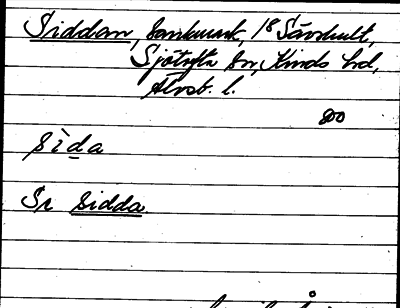 Siddan, sankmark, 1/8 Sävshult,
Sjötofta sn, Kinds hd,
Älvsb. l.
800
sìda
Sr sidda